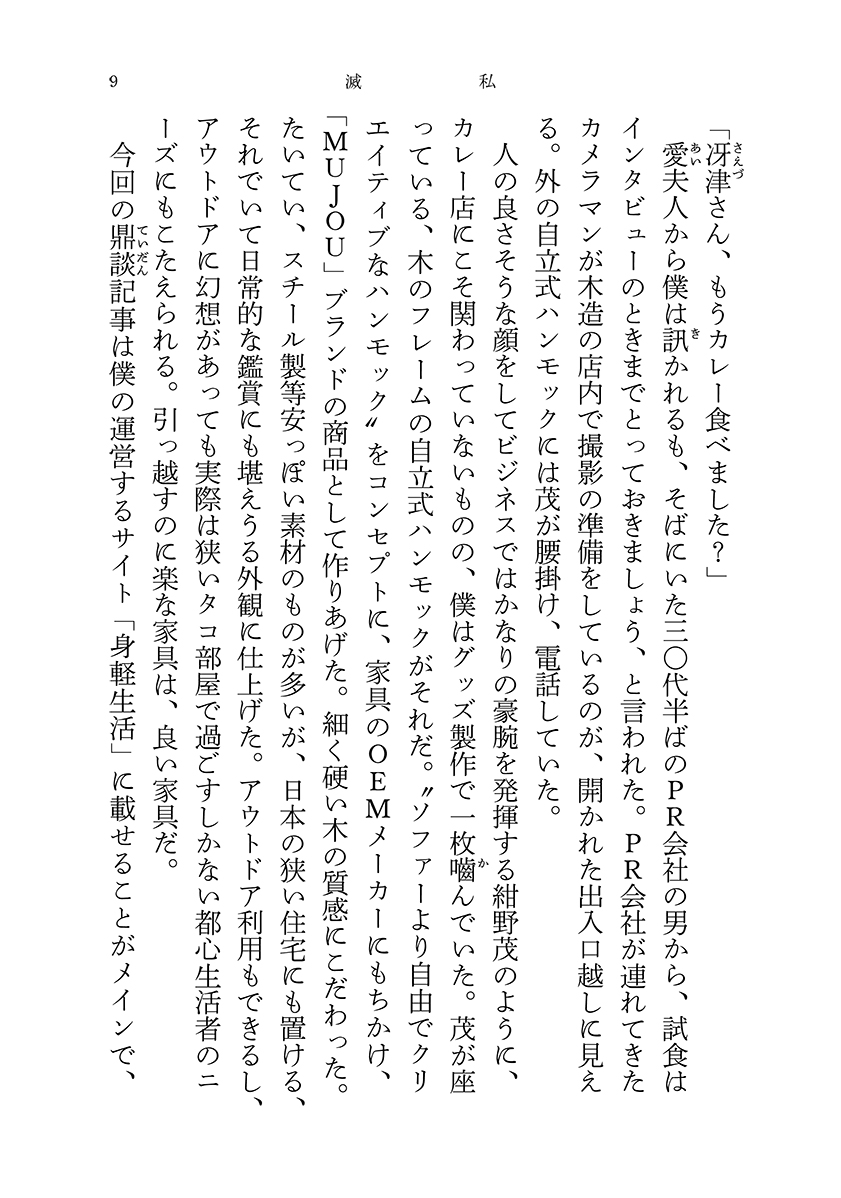 9
私滅
「冴津さん、もうカレー食べました？」
愛夫人から僕は訊かれるも、そばにいた三〇代半ばのＰＲ会社の男から、試食は
インタビューのときまでとっておきましょう、と言われた。ＰＲ会社が連れてきた
カメラマンが木造の店内で撮影の準備をしているのが、開かれた出入口越しに見え
る。外の自立式ハンモックには茂が腰掛け、電話していた。
人の良さそうな顔をしてビジネスではかなりの豪腕を発揮する紺野茂のように、
カレー店にこそ関わっていないものの、僕はグッズ製作で一枚嚙んでいた。茂が座
っている、木のフレームの自立式ハンモックがそれだ。〝ソファーより自由でクリ
エイティブなハンモック〟をコンセプトに、家具のＯＥＭメーカーにもちかけ、
「ＭＵＪＯＵ」ブランドの商品として作りあげた。細く硬い木の質感にこだわった。
たいてい、スチール製等安っぽい素材のものが多いが、日本の狭い住宅にも置ける、
それでいて日常的な鑑賞にも堪えうる外観に仕上げた。アウトドア利用もできるし、
アウトドアに幻想があっても実際は狭いタコ部屋で過ごすしかない都心生活者のニ
ーズにもこたえられる。引っ越すのに楽な家具は、良い家具だ。
今回の鼎談記事は僕の運営するサイト「身軽生活」に載せることがメインで、
さえづ
あい
き
か
ていだん